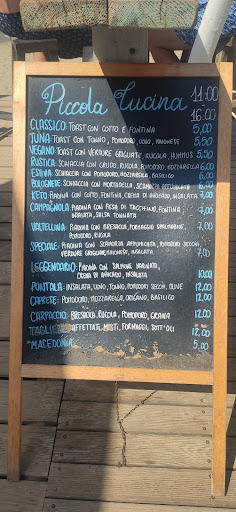 Piccola Cucina 11:00
16:00
CLASSICO: TOAST CON COTTO E FONTINA 5,00
TUNA: TOAST CON TONNO, POMODORO, UOVO, MAIONESE 5,50
VEGANO: TOAST CON VERDURE GRIGLIATE, RUCOLA, HUMMUS 5,50
RUSTICA: SCHIACCIA CON CRUDO, RUCOLA, POMODORO, MOZZARELLA 6,00
ESTIVA: SCHIACCIA CON POMODORO, MOZZARELLA, BASILICO 6,00
BOLOGNESE: SCHIACCIA CON MORTADELLA, SCAMORZA AFFUMICATA 6,00
KETO: PIADINA CON COTTO, FONTINA, CREMA DI AVOCADO, INSALATA 7,00
CAMPAGNOLA: PIADINA CON FESA DI TACCHINO, FONTINA, 7,00
INSALATA, SALSA TONNATA
VALTELLINA: PIADINA CON BRESAOLA, FORMAGGIO SPALMABILE, 7,00
POMODORO, RUCOLA
SPECIALE: PIADINA CON SCAMORZA AFFUMICATA, POMODORO SECCHI, 7,00
VERDURE GRIGLIATE, MAIONESE, INSALATA
LEGGENDARIO: PIADINA CON SALMONE MARINATO, 10,00
CREMA DI AVOCADO, INSALATA
PUNTALA: INSALATA, UOVO, TONNO, POMODORO SECCHI, OLIVE 12,00
CAPRESE: POMODORO, MOZZARELLA, ORIGANO, BASILICO 12,00
CARPACCIO: BRESAOLA, RUCOLA, POMODORO, GRANA 12,00
TAGLIERE: AFFETTATI MISTI, FORMAGGI, SOTT'OLI 12,00
MACEDONIA 5,00